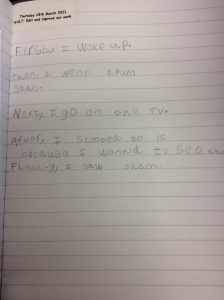 Thursday 18th March 2021
WALT: Edit and improve our work.
Firstly I woke up.
Then, I went down
stairs.
Next, I go on the TV.
After, I to it
because I wanted to see the
Finally, I saw them.